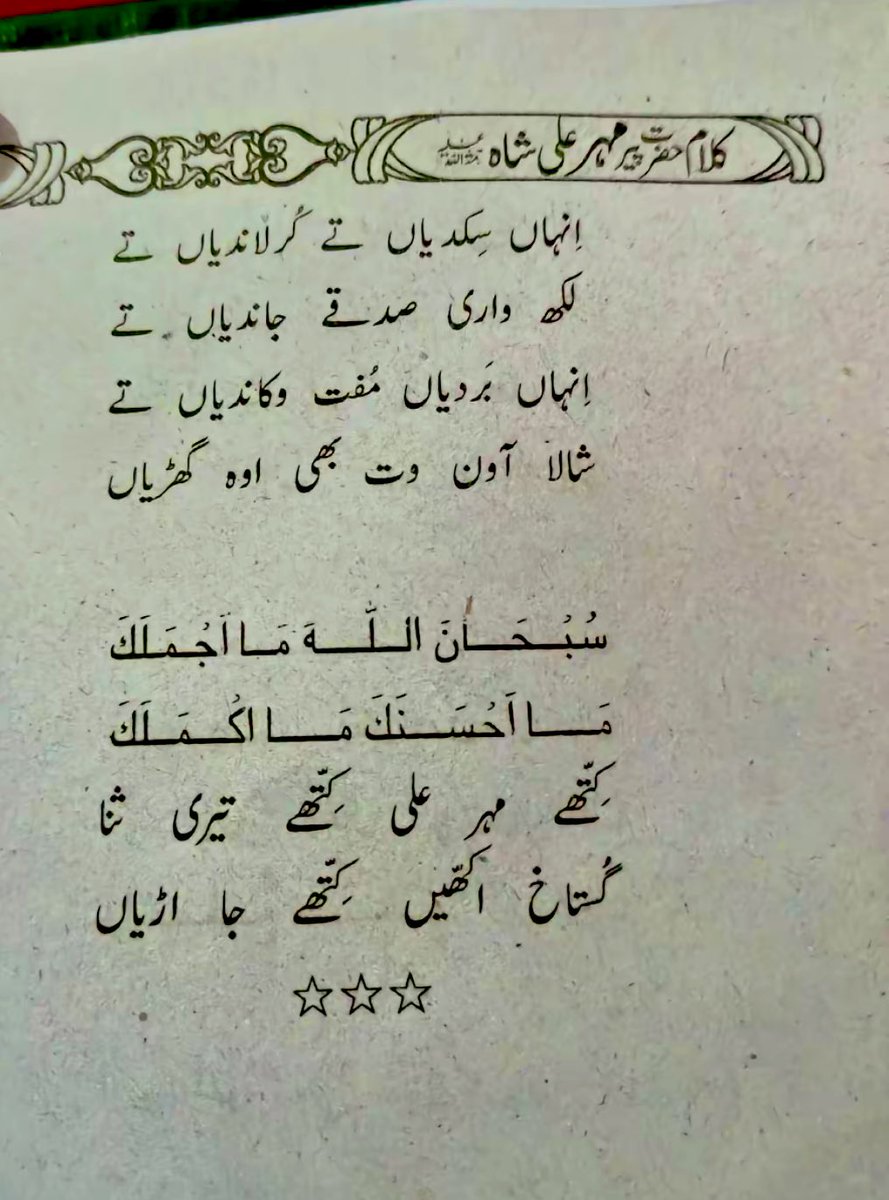 کلام حضرت پیر مہر علی شاہ رحمۃ اللہ علیہ
اِنہاں سِکدیاں تے کُرلاندیاں تے
لکھ واری صدقے جاندیاں تے
اِنہاں بَردیاں مُفت وکاندیاں تے
شالا آون وت بھی اوہ گھڑیاں
سُبْحَــانَ الــلّٰــهَ مَــا اَجْمَلَكَ
مَــا اَحْسَــنَكَ مَــا اَکْمَلَكَ
کِتّھے مہر علی کِتّھے تیری ثنا
گُستاخ اکھّیں کِتّھے جا اڑیاں
☆☆☆